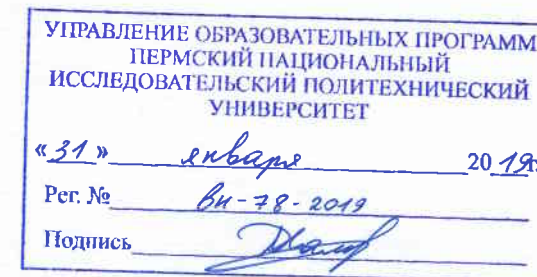 УПРАВЛЕНИЕ ОБРАЗОВАТЕЛЬНЫХ ПРОГРАММ
ПЕРМСКИЙ НАЦИОНАЛЬНЫЙ
ИССЛЕДОВАТЕЛЬСКИЙ ПОЛИТЕХНИЧЕСКИЙ
УНИВЕРСИТЕТ
«31» января 2019г.
Рег. № вн-78-2019
Подпись